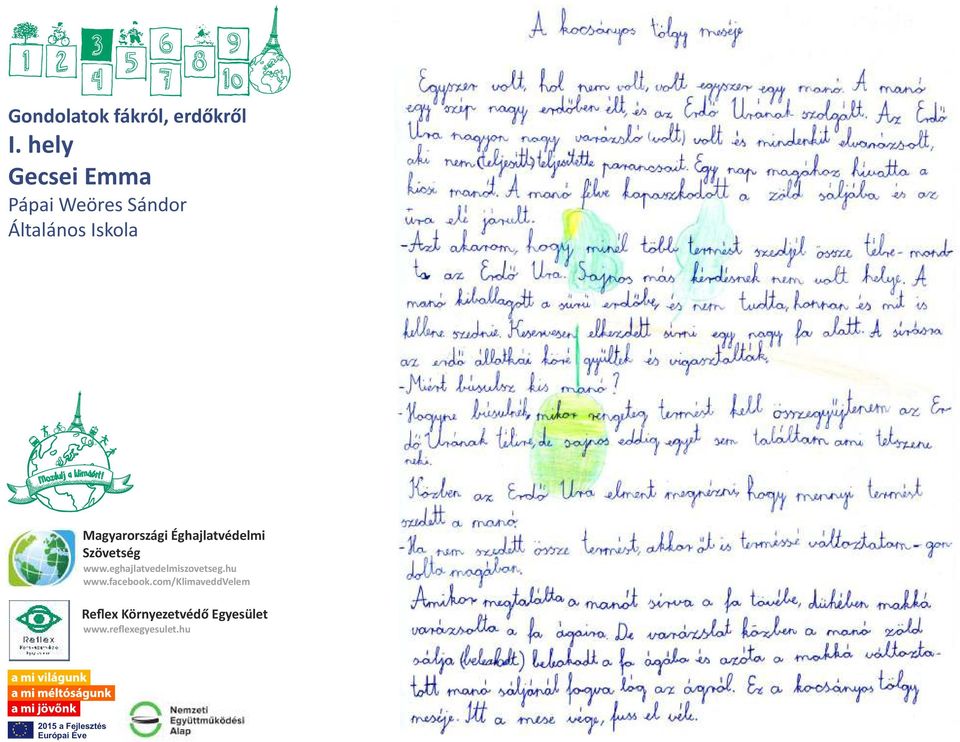 1 2 3 4 5 6 7 8 9 10
Gondolatok fákról, erdőkről
I. hely
Gecsei Emma
Pápai Weöres Sándor
Általános Iskola
Mozdulj a klímáért!
Magyarországi Éghajlatvédelmi
Szövetség
www.eghajlatvedelmiszovetseg.hu
www.facebook.com/KlimaveddVelem
Reflex Környezetvédő Egyesület
www.reflexegyesulet.hu
Reflex
Környezetvédő
Egyesület
a mi világunk
a mi méltóságunk
a mi jövőnk
2015 a Fejlesztés
Európai Éve
Nemzeti
Együttműködési
Alap
A kocsányos tölgy meséje
Egyszer volt, hol nem volt, volt egyszer egy manó. A manó
egy szép nagy erdőben élt, és az Erdő Urának szolgált. Az Erdő
Ura nagyon nagy varázsló (volt) volt és mindenkit elvarázsolt,
aki nem (teljesitt) teljesitette parancsait. Egy nap magához hivatta a
kicsi manót. A manó félve kapaszkodott a zöld sáljába és az
úra elé járult.
-Azt akarom, hogy minél több termést szedjél össze télre-mond-
ta az Erdő Ura. Sajnos más kérdésnek nem volt helye. A
manó kiballagott a sűrű erdőbe, és nem tudta, honnan és mit is
kellene szednie. Keservesen elkezdett sirni egy nagy fa alatt. A sirásra
az erdő állatkái köré gyűltek és vigasztalták.
-Miért búsulsz kis manó?
-Hogyne búsulnék, mikor rengeteg termést kell összegyűjtenem az Er-
dő Urának télire, de sajnos eddig egyet sem találtam ami tetszene
neki.
Közben az Erdő Ura elment megnézni, hogy mennyi termést
szedett a manó.
-Ha nem szedett össze termést, akkor őt is terméssé változtatom-gon-
dolta magában.
Amikor megtalálta a manót sirva a fa tövébe, dühében makká
varázsolta a fa ágaira. De varázslat közben a manó zöld
sálja (beleakadt) beleakadt a fa ágába és azóta a makká változta-
tott manó sáljánál fogva lóg az ágról. Ez a kocsányos tölgy
meséje. Itt a mese vége, fuss el véle.